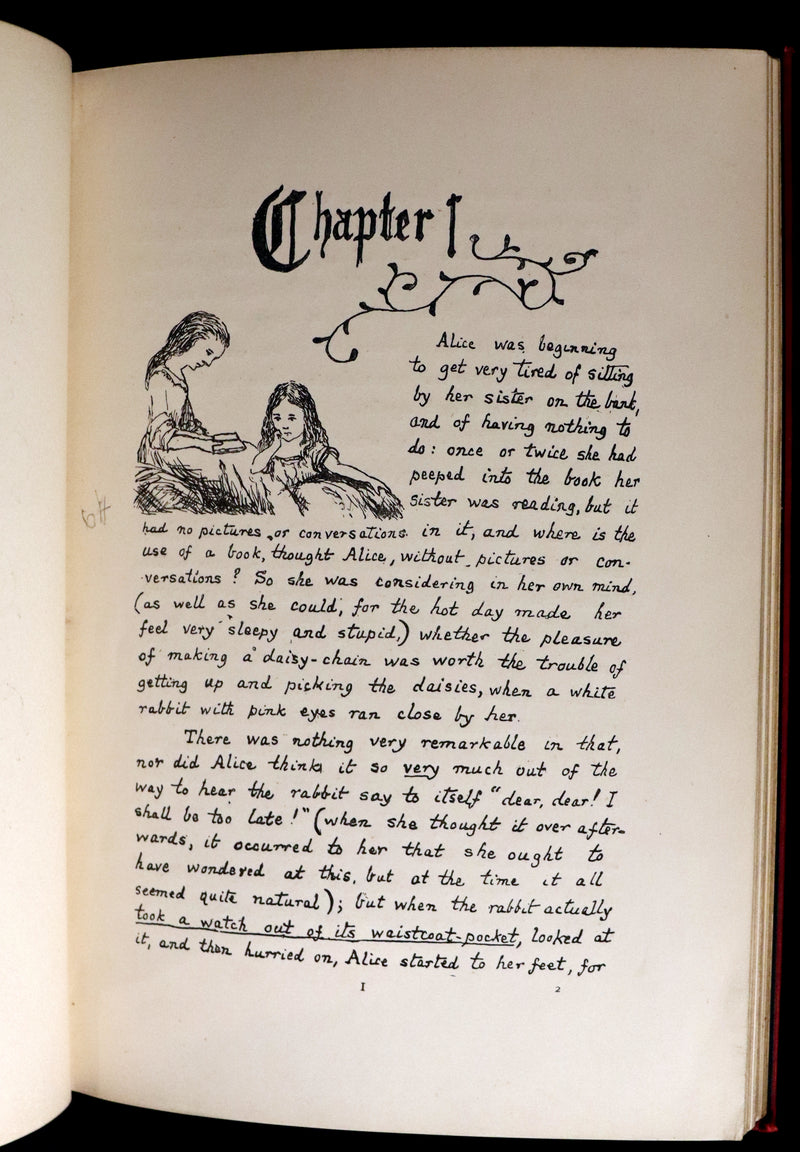 Chapter I
Alice was beginning
to get very tired of sitting
by her sister on the bank,
and of having nothing to
do: once or twice she had
peeped into the book her
sister was reading, but it
had no pictures or conversations in it, and where is the
use of a book, thought Alice, without pictures or con-
versations? So she was considering in her own mind,
(as well as she could, for the hot day made her
feel very sleepy and stupid,) whether the pleasure
of making a daisy-chain was worth the trouble of
getting up and picking the daisies, when a white
rabbit with pink eyes ran close by her.
There was nothing very remarkable in that,
nor did Alice think it so very much out of the
way to hear the rabbit say to itself "dear, dear! I
shall be too late!" (when she thought it over after-
wards, it occurred to her that she ought to
have wondered at this, but at the time it all
seemed quite natural); but when the rabbit actually
took a watch out of its waistcoat-pocket, looked at
it, and then hurried on, Alice started to her feet, for
1 2